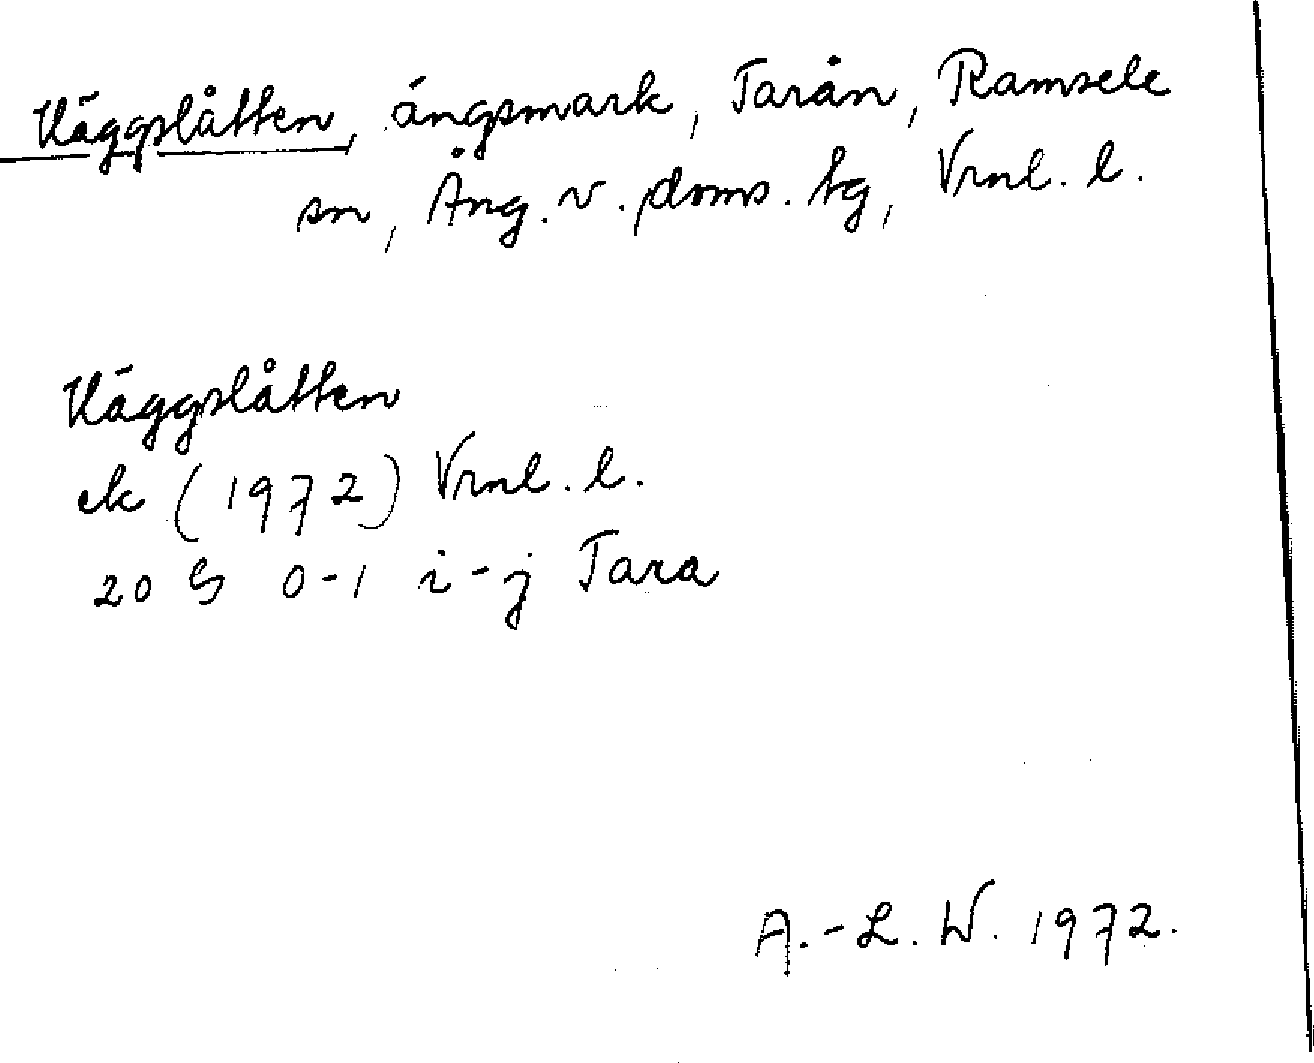 Häggslåtten, ängsmark, Tarån, Ramsele
sn, Ång. v. doms. tg, Vrnl. l.
Häggslåtten
ek (1972) Vrnl. l.
20 G 0-1 i-j Tara
A.-L. W. 1972.